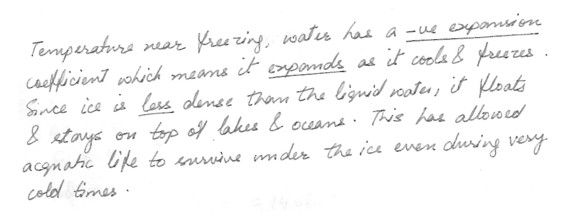 Temperature near freezing, water has a -ve expansion
coefficient which means it expands as it cools & freezes.
Since ice is less dense than the liquid water, it floats
& stays on top of lakes & oceans. This has allowed
acquatic life to survive under the ice even during very
cold times.